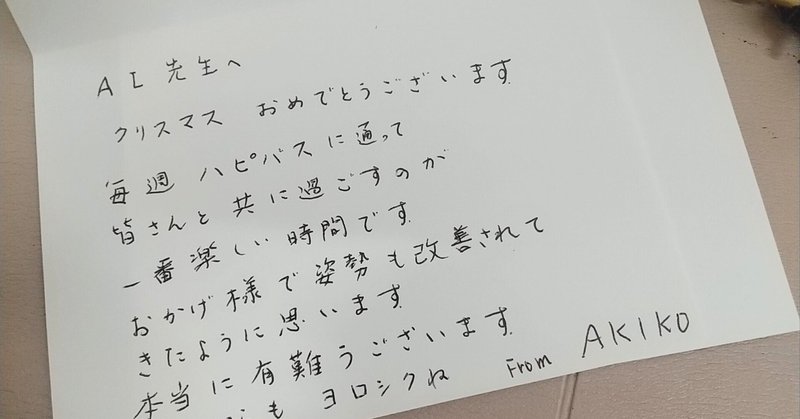 AI先生へ
クリスマス おめでとうございます
毎週 ハピバスに通って
皆さんと共に過ごすのが
一番楽しい時間です
おかげ様で姿勢も改善されて
きたように思います
本当に有難うございます
も ヨロシクね
From AKIKO